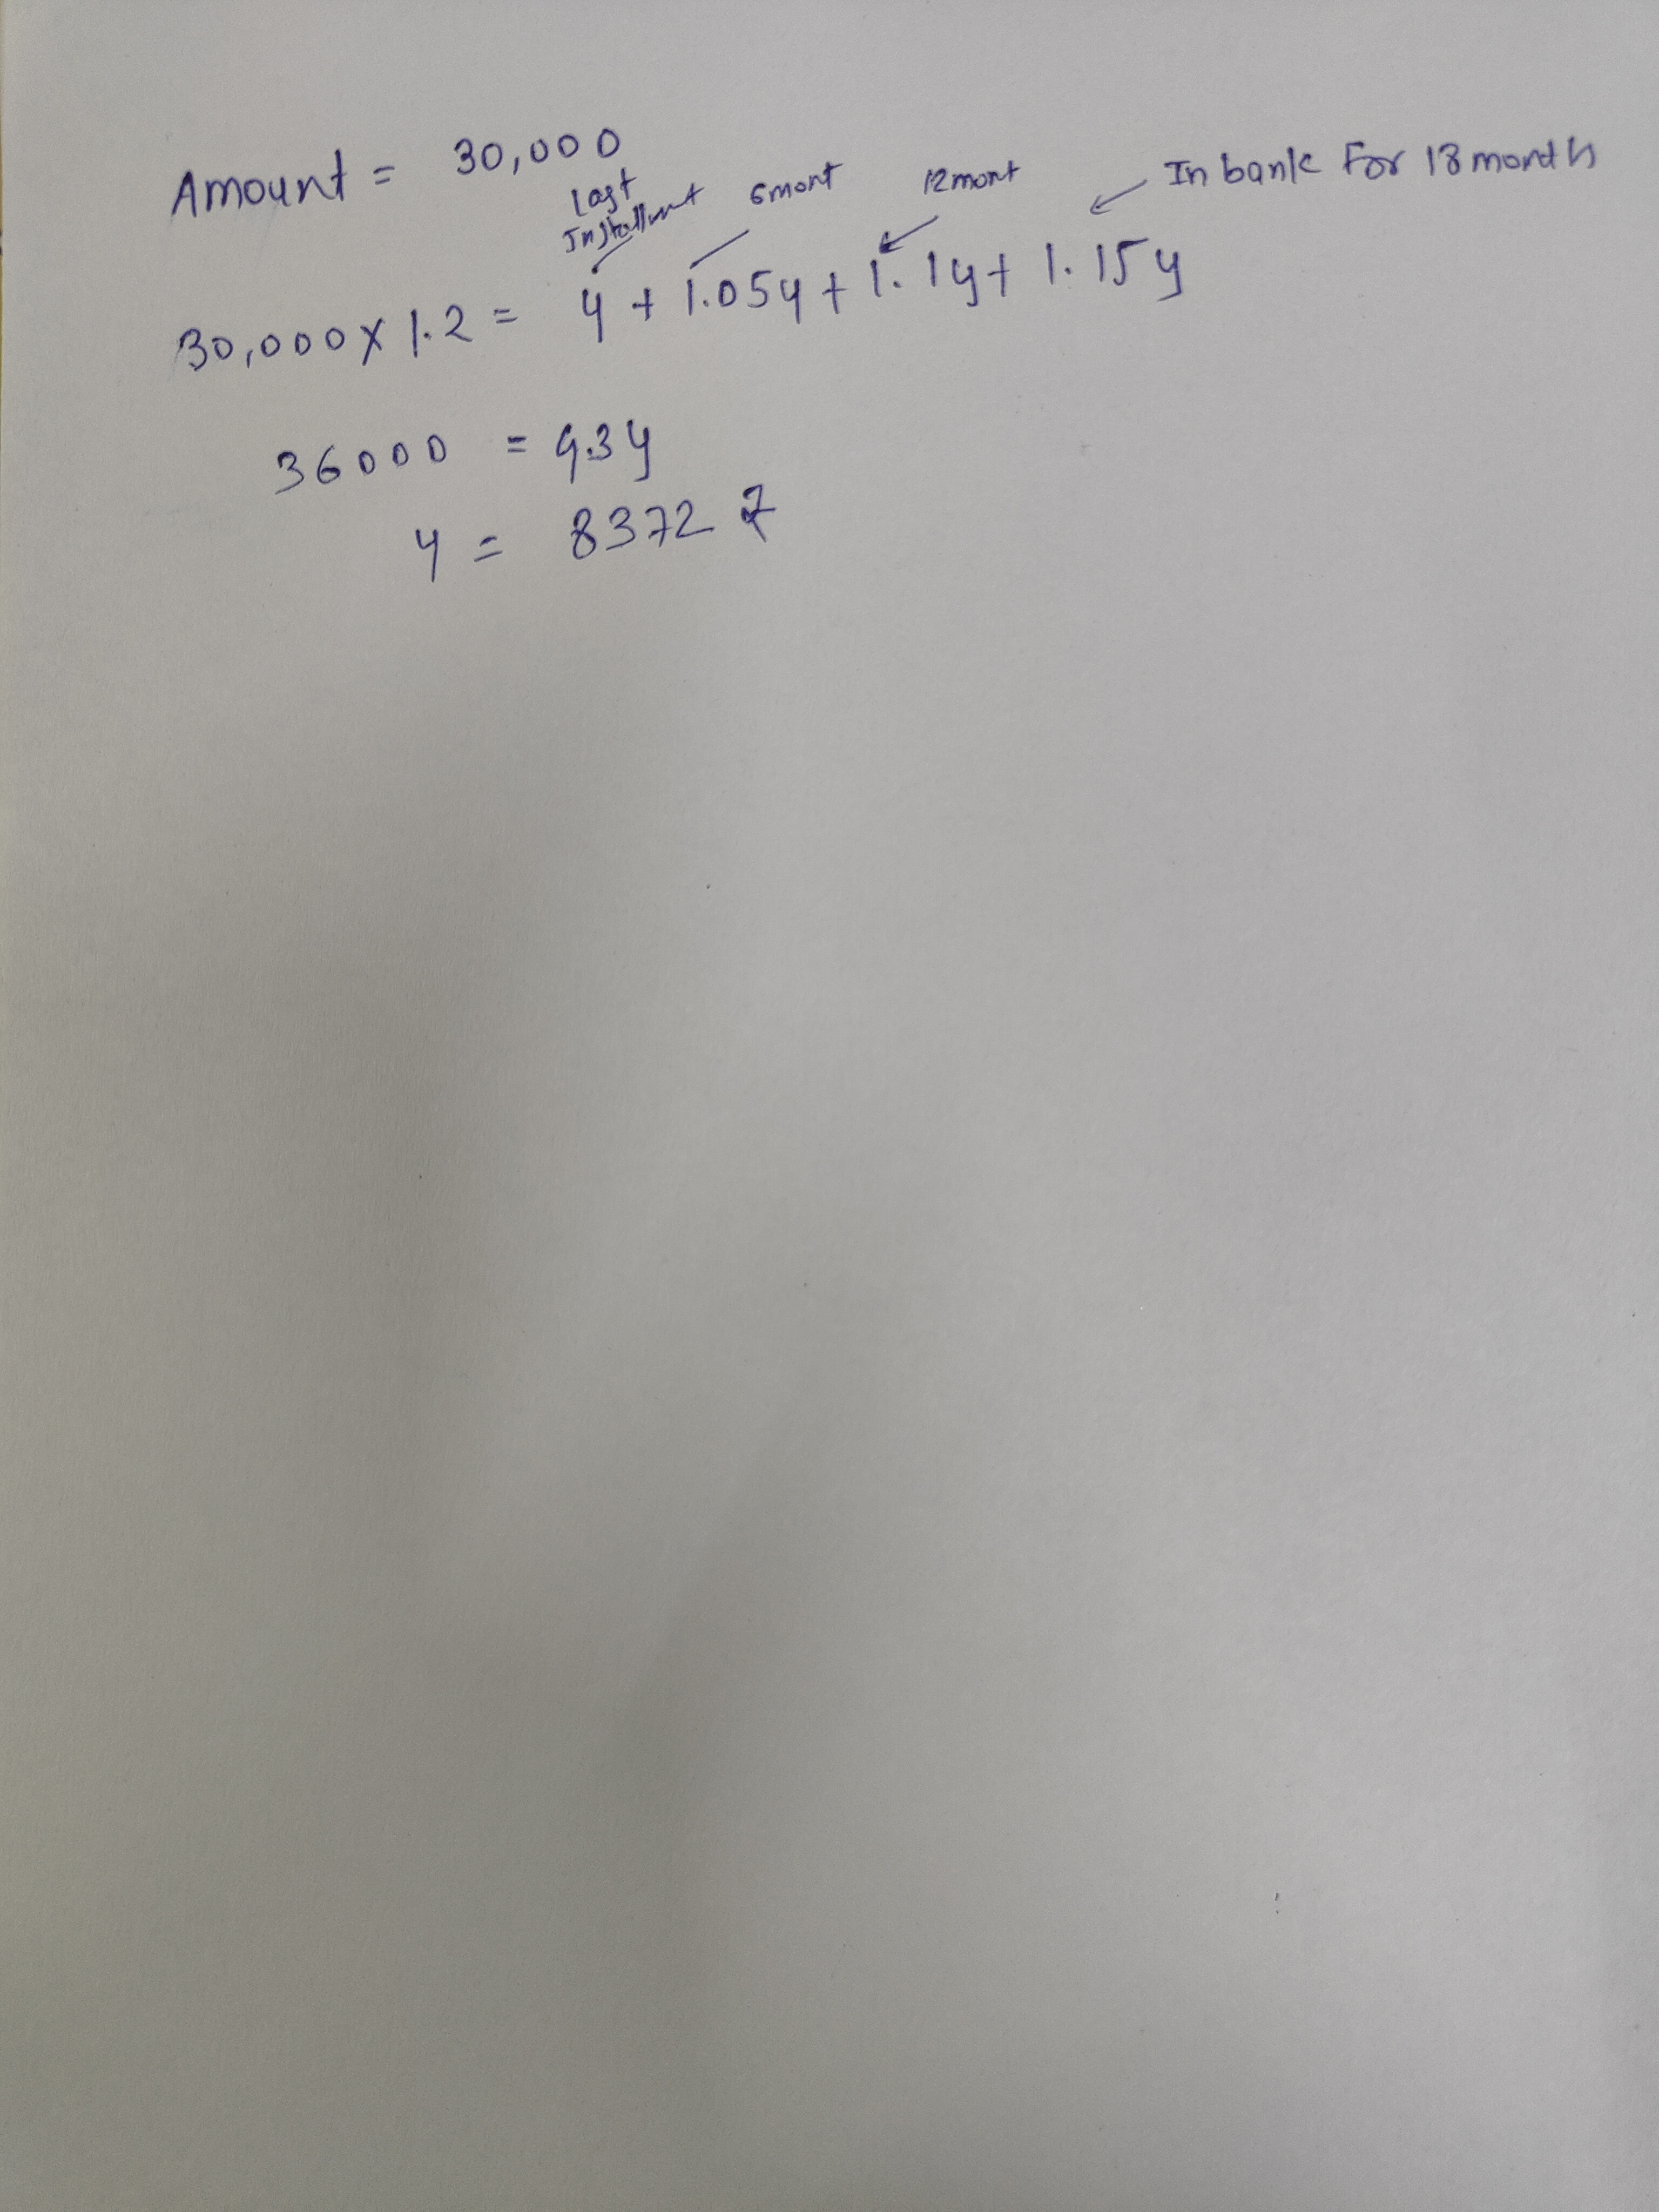 Amount = 30,000
Last Installment 6mont 12mont In bank For 18 month
30,000 x 1.2 = y + 1.05y + 1.1y + 1.15y
36000 = 4.3y
y = 8372 ₹